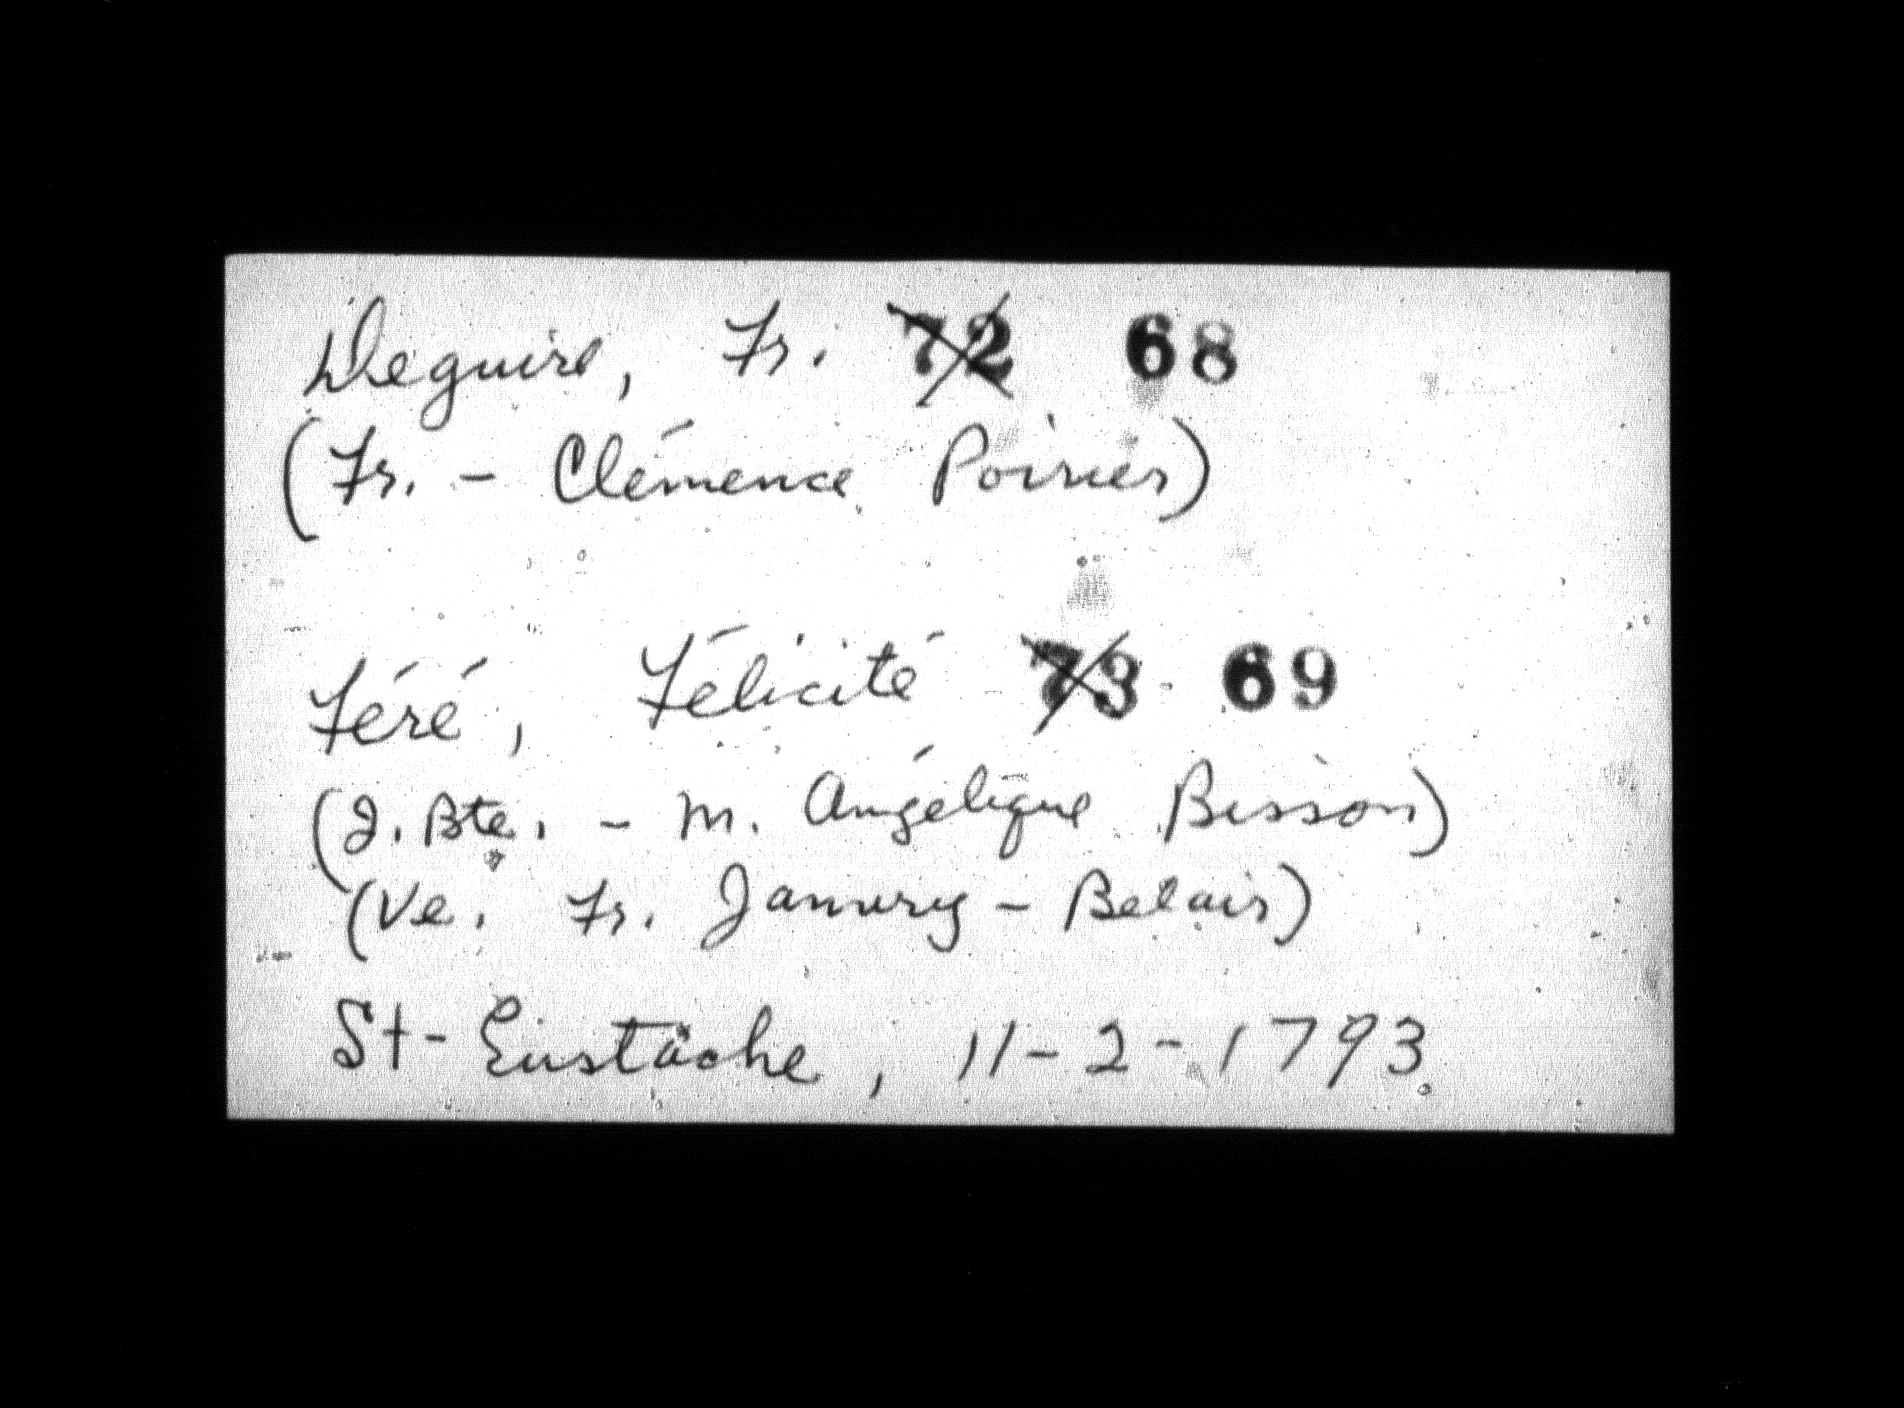 Deguire, Fr. 72 68
(Fr. - Clémence Poirier)
Féré, Félicité 73 69
(J. Bte. - M. Angélique Bisson)
(Ve. Fr. Janvry - Belair)
St-Eustache, 11-2-1793